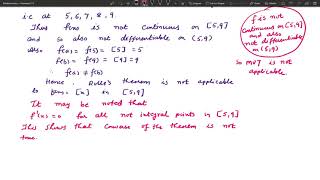 i.e at 5, 6, 7, 8, 9.
Thus f(x) is not continuous on [5,9]
and so also not differentiable on (5,9)
Also, f(a) = f(5) = [5] = 5
f(b) = f(9) = [9] = 9
∴ f(a) ≠ f(b)
Hence, Rolle's theorem is not applicable
to f(x) = [x] on [5,9]
It may be noted that
f'(x) = 0 for all not integral points in [5,9]
This shows that converse of the theorem is not
true.
f is not
continuous on [5,9]
and also
not differentiable
on (5,9)
So MVT is not
applicable.